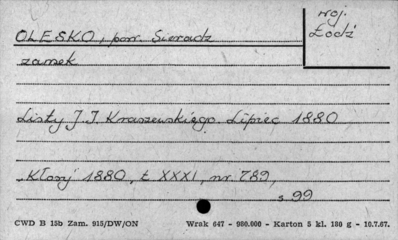 OLESKO, pow. Sieradz
woj. Łódź
zamek
Listy J. I. Kraszewskiego. Lipiec 1880
"Kłosy" 1880, t XXXI, nr 789,
s. 99
CWD B 15b Zam. 915/DW/ON Wrak 647 - 980.000 - Karton 5 kl. 180 g - 10.7.67.